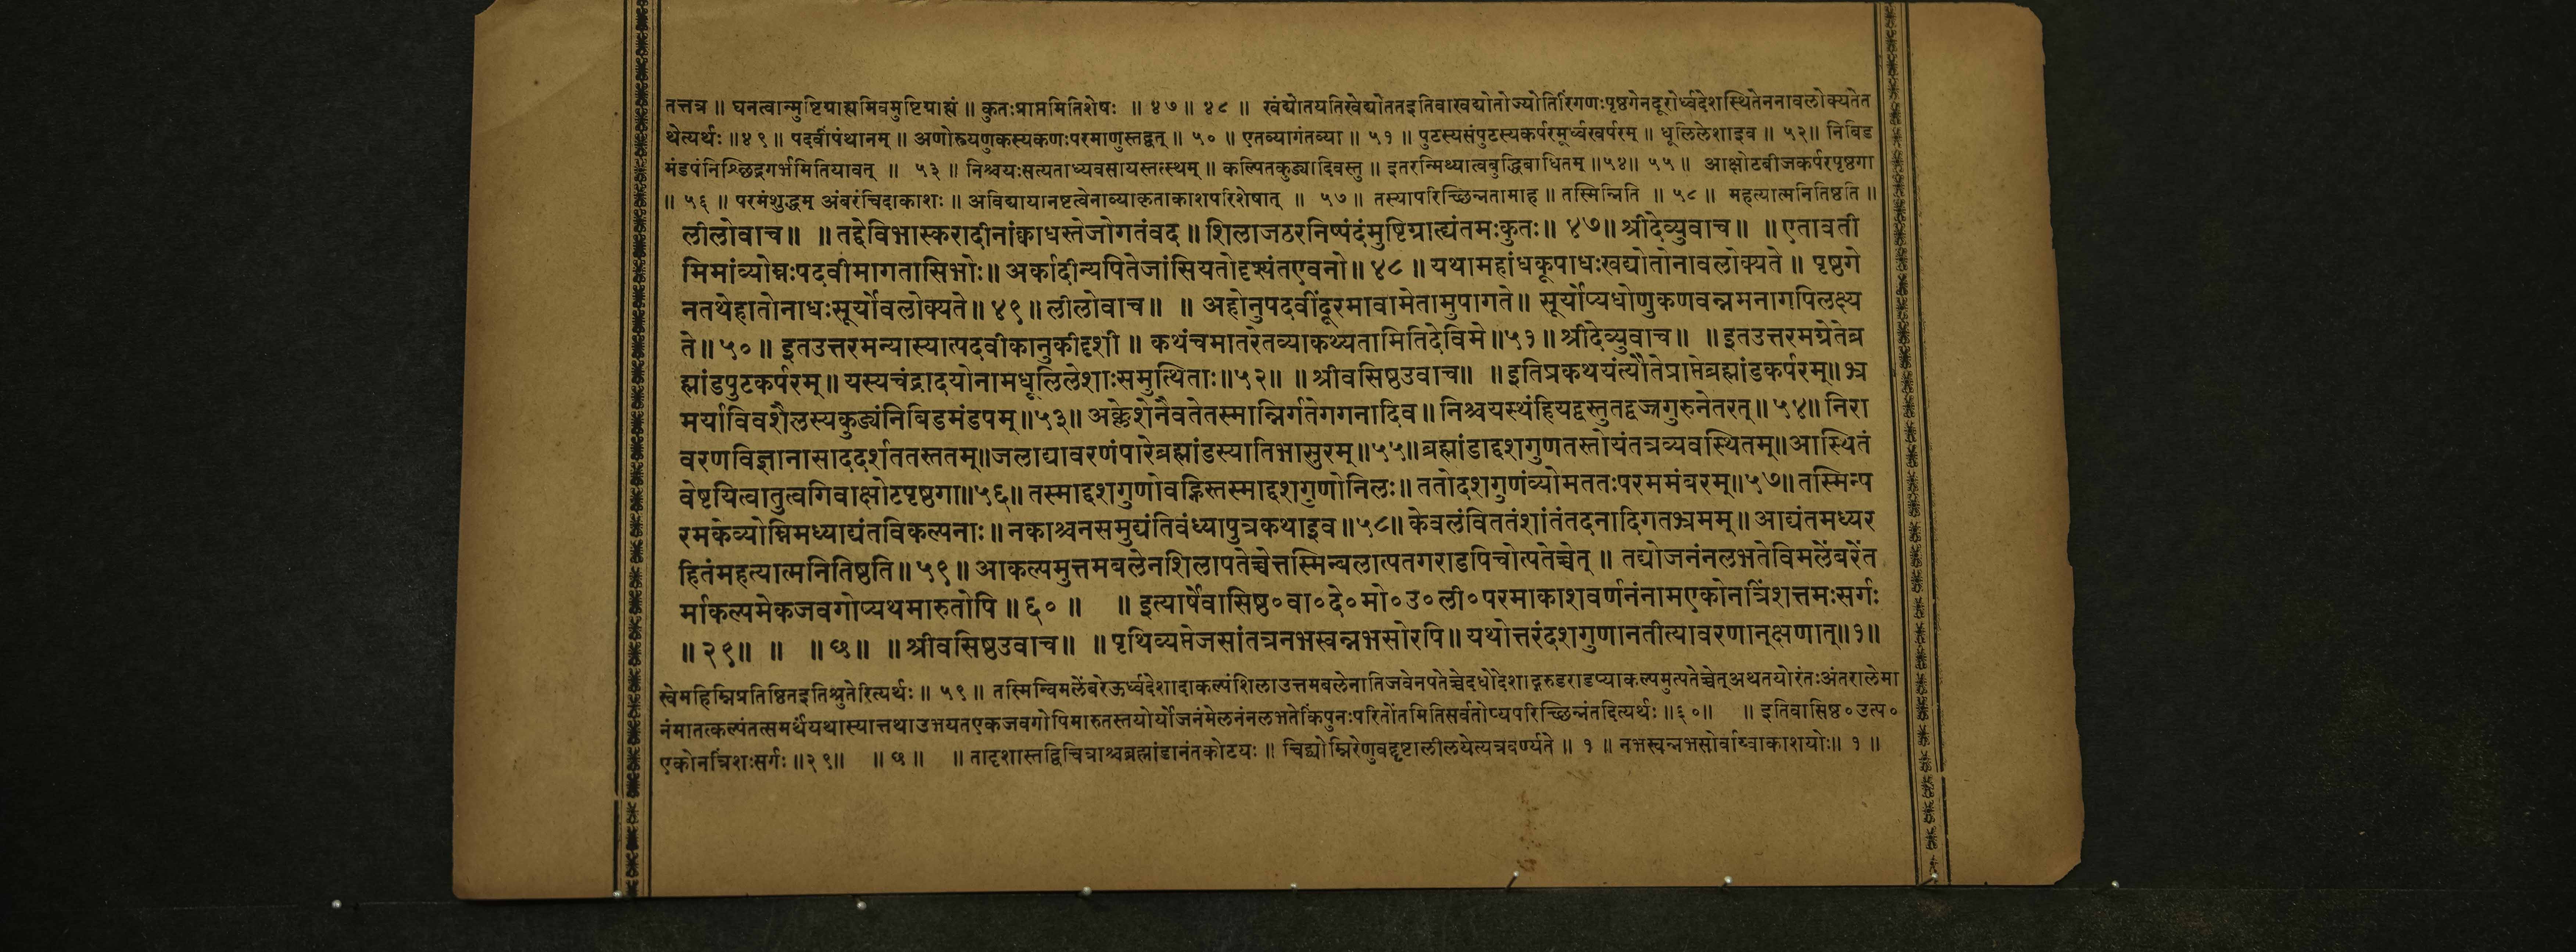 तत्तत्र ॥ घनत्वान्मुष्टिग्राह्यमिवमुष्टिग्राह्यं ॥ कुतःप्राप्तमितिशेषः ॥ ४७ ॥ ४८ ॥ खंद्योतयतिखेद्योततइतिवाखद्योतोज्योतिरिंगणःपृष्ठगेनदूरोर्ध्वदेशस्थितेननावलोक्यतेत
थेत्यर्थः ॥४९॥ पदवींपंथानम् ॥ अणोरुयणुकस्यकणःपरमाणुस्तद्वत् ॥ ५० ॥ एतव्यागंतव्या ॥ ५१ ॥ पुटस्यसंपुटस्यकर्परमूर्ध्वखर्परम् ॥ धूलिलेशाइव ॥ ५२॥ निबिड
मंडपंनिश्छिद्रगर्भमितियावत् ॥ ५३ ॥ निश्चयःसत्यताध्यवसायस्तत्स्थम् ॥ कल्पितकुड्यादिवस्तु ॥ इतरन्मिथ्यात्वबुद्धिबाधितम् ॥५४॥ ५५ ॥ आक्षोटबीजकर्परपृष्ठगा
॥ ५६ ॥ परमंशुद्धम् अंबरंचिदाकाशः ॥ अविद्यायानष्टत्वेनाव्याकृताकाशपरिशेषात् ॥ ५७ ॥ तस्यापरिच्छिन्नतामाह ॥ तस्मिन्निति ॥ ५८ ॥ महत्यात्मनितिष्ठति ॥
लीलोवाच॥ ॥ तद्देविभास्करादीनांक्वाधस्तेजोगतंवद ॥ शिलाजठरनिष्पंदंमुष्टिग्राह्यंतमःकुतः॥ ४७॥ श्रीदेव्युवाच॥ ॥ एतावती
मिमांव्योम्नःपदवीमागतासिभोः॥ अर्कादीन्यपितेजांसियतोदृश्यंतएवनो॥ ४८ ॥ यथामहांधकूपाधःखद्योतोनावलोक्यते ॥ पृष्ठगे
नतथेहातोनाधःसूर्योवलोक्यते॥ ४९॥ लीलोवाच॥ ॥ अहोनुपदवींदूरमावामेतामुपागते॥ सूर्योप्यधोणुकणवन्नमनागपिलक्ष्य
ते॥ ५० ॥ इतउत्तरमन्यास्यात्पदवीकानुकीदृशी ॥ कथंचमातरेतव्याकथ्यतामितिदेविमे ॥५१॥ श्रीदेव्युवाच॥ ॥ इतउत्तरमग्रेतेब्र
ह्मांडपुटकर्परम्॥ यस्यचंद्रादयोनामधूलिलेशाःसमुत्थिताः॥५२॥ ॥ श्रीवसिष्ठउवाच॥ ॥ इतिप्रकथयंत्यौतेप्राप्तेब्रह्मांडकर्परम्॥ भ्र
मर्याविवशैलस्यकुड्यंनिबिडमंडपम्॥५३॥ अक्लेशेनैवतेतस्मान्निर्गतेगगनादिव॥ निश्चयस्थंहियद्वस्तुतद्वज्रगुरुनेतरत्॥ ५४॥ निरा
वरणविज्ञानासाददर्शततस्ततम्॥जलाद्यावरणंपारेब्रह्मांडस्यातिभासुरम्॥५५॥ब्रह्मांडाद्दशगुणतस्तोयंतत्रव्यवस्थितम्॥आस्थितं
वेष्टयित्वातुत्वगिवाक्षोटपृष्ठगा॥५६॥ तस्माद्दशगुणोवह्निस्तस्माद्दशगुणोनिलः॥ ततोदशगुणंव्योमततःपरममंबरम्॥५७॥ तस्मिन्प
रमकेव्योम्निमध्याद्यंतविकल्पनाः॥ नकाश्चनसमुद्यंतिवंध्यापुत्रकथाइव॥५८॥ केवलंविततंशांतंतदनादिगतभ्रमम्॥ आद्यंतमध्यर
हितंमहत्यात्मनितिष्ठति॥ ५९ ॥ आकल्पमुत्तमबलेनशिलापतेच्चेत्तस्मिन्बलात्पतगराडपिचोत्पतेच्चेत् ॥ तद्योजनंनलभतेविमलेंबरेंत
र्माकल्पमेकजवगोप्यथमारुतोपि ॥ ६० ॥ ॥ इत्यार्षेवासिष्ठ०वा०दे०मो०उ०ली०परमाकाशवर्णनंनामएकोनत्रिंशत्तमःसर्गः
॥ २९॥ ॥ ॥ छ॥ ॥ श्रीवसिष्ठउवाच॥ ॥ पृथिव्यप्तेजसांतत्रनभस्वन्नभसोरपि॥ यथोत्तरंदशगुणानतीत्यावरणान्क्षणात्॥१॥
स्वेमहिम्निप्रतिष्ठितइतिश्रुतेरित्यर्थः ॥ ५९ ॥ तस्मिन्विमलेंबरेऊर्ध्वदेशादाकल्पंशिलाउत्तमबलेनातिजवेनपतेच्चेदधोदेशाद्गरुडराडप्याकल्पमुत्पतेच्चेत्अथतयोरंतःअंतरालेमा
नंमातत्कल्पंतत्समर्थंयथास्यात्तथाउभयतएकजवगोपिमारुतस्तयोर्योजनंमेलनंनलभतेकिंपुनःपरितोंतमितिसर्वतोप्यपरिच्छिन्नंतदित्यर्थः ॥६०॥ ॥ इतिवासिष्ठ०उत्प०
एकोनत्रिंशःसर्गः ॥२९॥ ॥ छ ॥ ॥ तादृशास्तद्विचित्राश्चब्रह्मांडानंतकोटयः ॥ चिद्व्योम्निरेणुवद्दृष्टालीलयेत्यत्रवर्ण्यते ॥ १ ॥ नभस्वन्नभसोर्वाय्वाकाशयोः॥ १ ॥